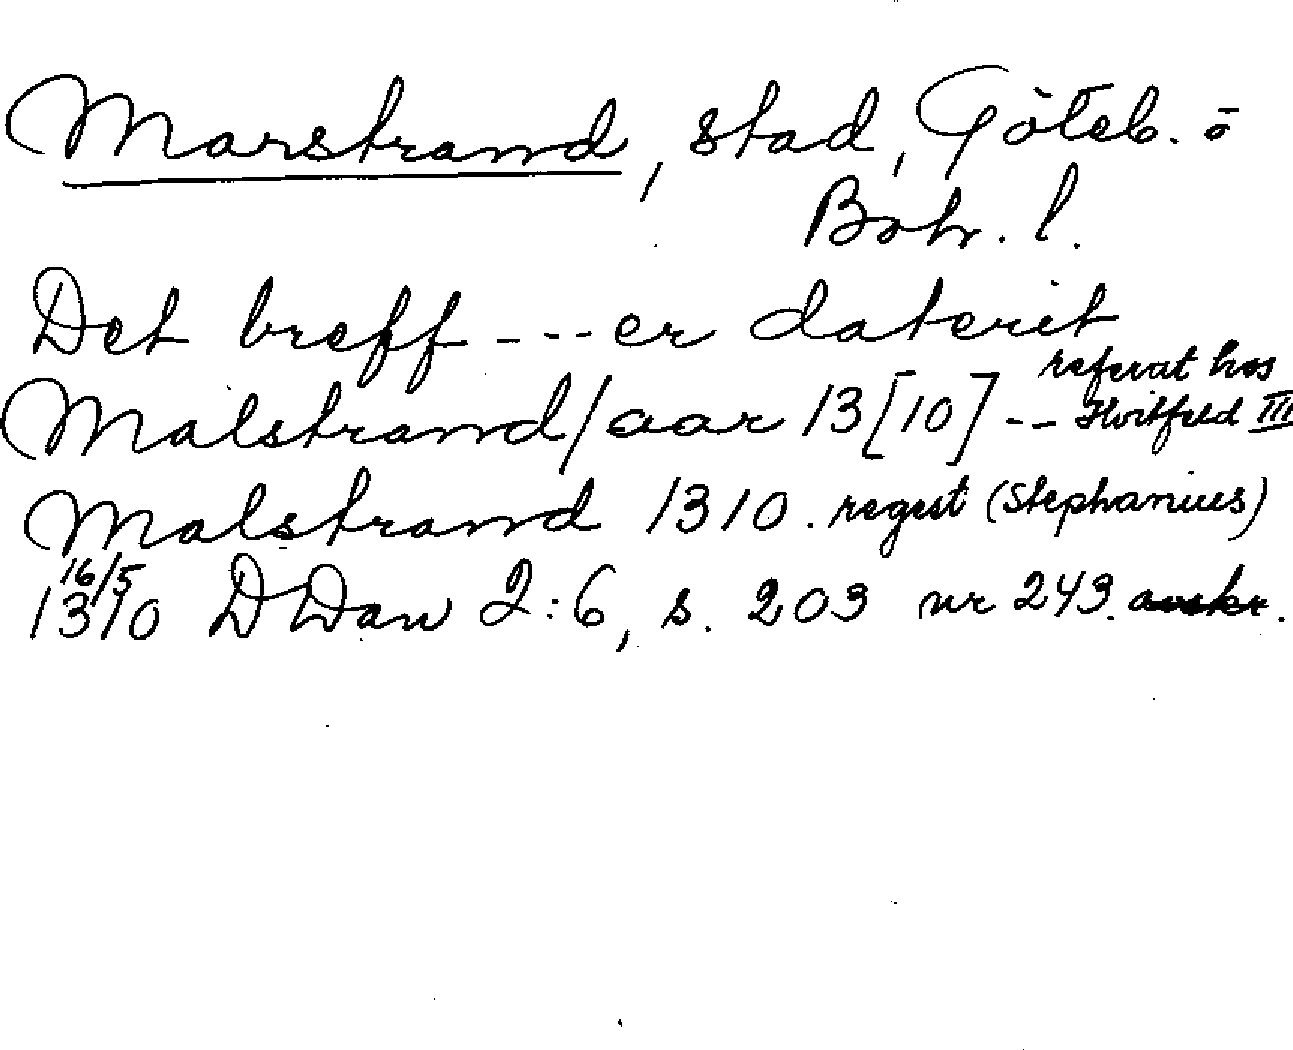 Marstrand, stad, Göteb. o
Boh. l.
Det breff --- er daterit
Malstrand/aar 13[10] -- referat hos Hvitfeld III
Malstrand 1310. regest (Stephanius)
16/5
1310 DDan 2:6, s. 203 nr 243.